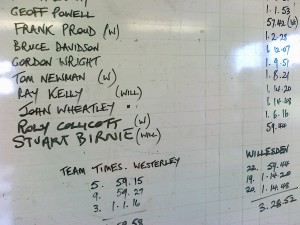 GEOFF POWELL 1.1.53
FRANK PROUD (W) 57.42 (W)
BRUCE DAVIDSON 1.2.25
GORDON WRIGHT
TOM NEWMAN (W) 1.9.51
RAY KELLY (WILL) 1.8.21
JOHN WHEATLEY 1.14.20
ROLY COLLYCOTT (W) 1.14.48
STUART BIRNIE (WILL) 1.6.16
59.44
TEAM TIMES. WESTERLEY
5. 59.15
9. 59.27
3. 1.1.16
WILLESDEN
22. 59.44
19. 1.14.20
20. 1.14.48
3.28.52